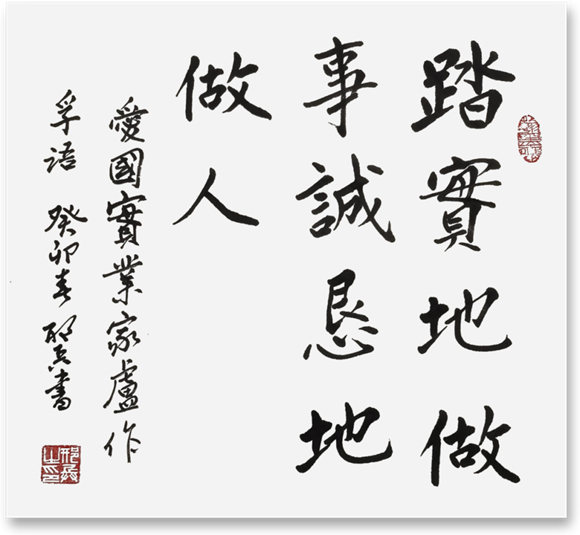 踏實地做
事誠恳地
做人
愛國實業家盧作
孚语 癸卯春 邢兵書